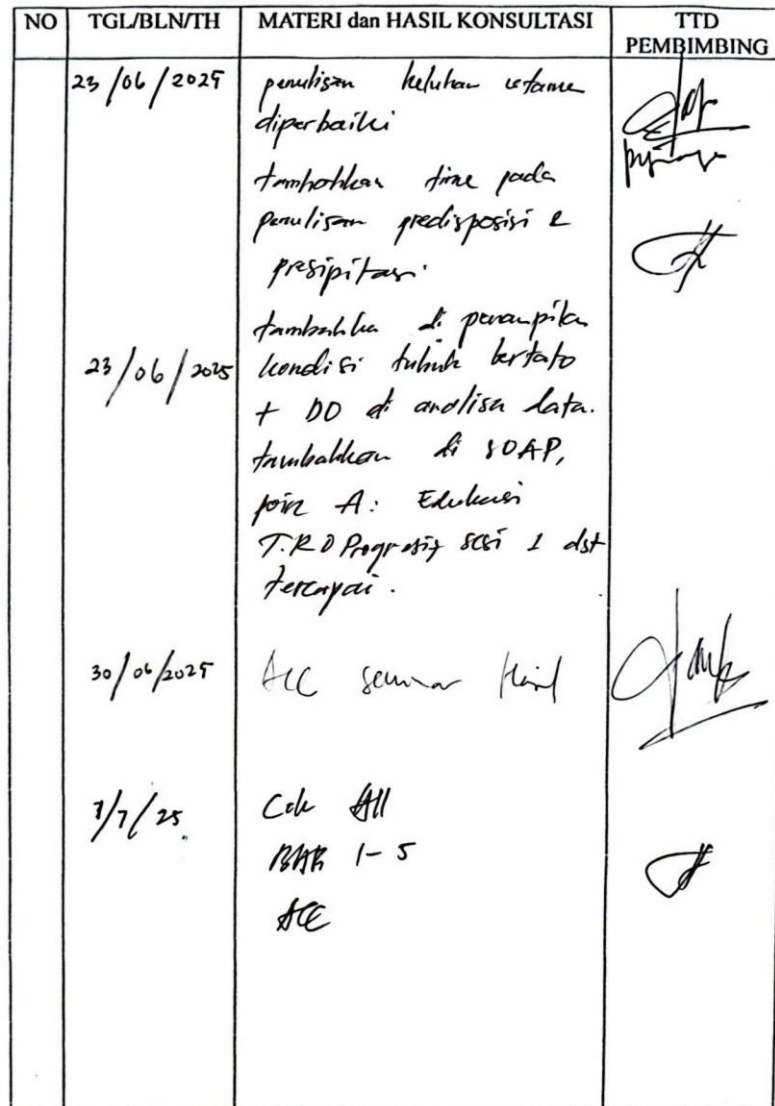 NO TGL/BLN/TH MATERI dan HASIL KONSULTASI TTD PEMBIMBING
23/06/2025 penulisan keluhan utama
diperbaiki
tambahkan time pada
penulisan predisposisi &
presipitasi.
tambahkan di penampilan
23/06/2025 kondisi tubuh bertato
+ DO di analisa data.
tambahkan di SOAP,
poin A: Edukasi
T.R.O Progresif sesi 1 dst
tercapai.
30/06/2025 ACC seminar Hasil
1/7/25 Cek All
BAB 1-5
ACC